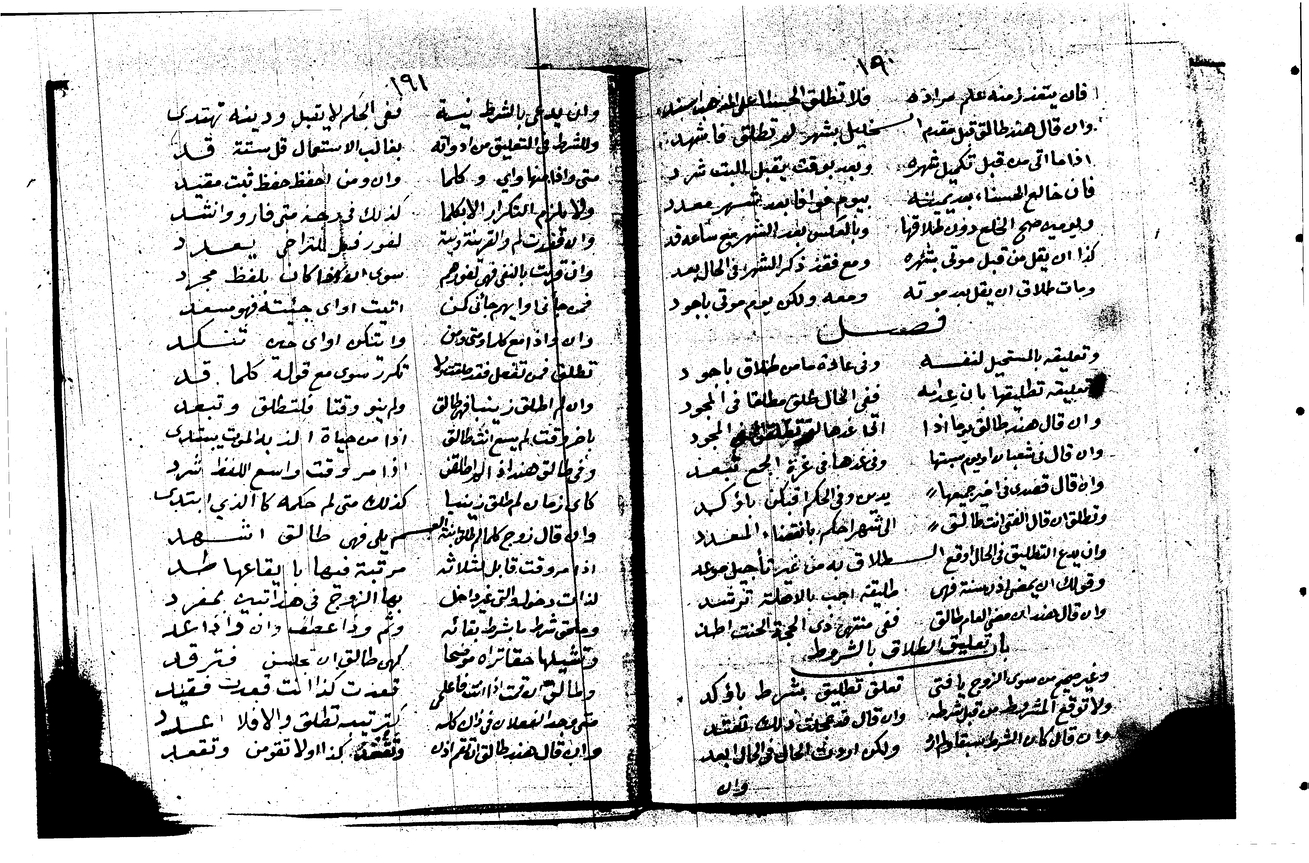 ١٩٠
فان يتعذر منه علم مراده فلا تطلق الحسناء على المذهب
وان قال هند طالق قبل مقدم الـ ـخليل بشهر لم تطلق فاشهد
اذا ما اتى من قبل تكميل شهره وبعد بوقت
فان خالع الحسناء بعد يمينه بيوم فوافا بعد شهر معدد
ويومين صح الخلع دون طلاقها وبالعكس بعد الشهر مع ساعه قد
كذا ان يقل من قبل موتى بشهره ومع فقد ذكر الشهر فى الحال بعد
ومات طلاق ان يقل بعد موته ومعه ولكن يوم موتى باجود
فصل
وتعليقه بالمستحيل لنفسه وفى عادة ما من طلاق باجود
تعليقه تطليقها بان ففى الحال طلق مطلقا فى المجود
وان قال هند طالق يوما اذا اتى غدها المجود
وان قال فى شعبان او يوم سبتها وفى غدها فى غرة الجمع تبعد
وان قال قصدى فى اخر جميعها يدين وفى الحكم اقبلن باوكد
وتطلق ان قال الفتى انت طالق الى شهر احكم بانقضاء المعدد
وان يدع التطليق فى الحال اوقع الـ ـطلاق به من غير تأجيل موعد
وقولك ان يمضى اذن سنة فهى طليقة اجب بالاهلة ترشد
وان قال هند ان مضى العام طالق ففى منتهى ذى الحجة الحنث اطد
باب تعليق الطلاق بالشروط
وغير صحيح من سوى الزوج يا فتى تعلق تطليق بشرط باوكد
ولا توقع المشروط من قبل شرطه وان قال قد عجلت ذلك تعتد
وان قال كان الشرط ولكن اردت الحال فى الحال ابعد
وان
١٩١
وان يدعى بالشرط نية ففى الحكم لا يقبل ودينه تهتدى
وللشرط فى التعليق من ادواته بغالب الاستعمال قل ستة قد
متى واذا منها واي وكلما وان ومن احفظ حفظ ثبت مقيد
ولا يلزم التكرار الا بكلما كذلك فى وجه متى فارو وانشد
وان فقدت لم والقرينة ونية لفور فبل للتراخى يعدد
وان قرنت بالنفى فهى لفورهم سوى ان كان بلفظ مجرد
فمن جانى او ايهم جانى كن اتيت او اى جيئته فهو مسعد
وان واذا مع كلما ومتى ومن وايتكن او اى حين تنكد
تطلق فمن تفعل فقد طلقت ولا تكرر سوى مع قوله كلما قد
وان لم اطلق زينبا فهى طالق ولم ينو وقتا فلتطلق وتبعد
باخر وقت لم يسع انت طالق اذا من حياة الذ بدا لموت يبتدى
وفى طالق هند اذا لم اطلقن اذا مر وقت واسع اللفظ شرد
كاى زمان لم اطلق زينبا كذلك متى لم حكمه كالذي ابتدى
وان قال زوج كلما لم اطلق ابنة الـ ـعم يلى فهى طالق اشهد
اذا مر وقت قابل لثلاثه مرتبة فيها بايقاعها طد
لذات دخول والتى غير داخل بها الزوج فى هذا تبين بمفرد
ومعلق شرط ما بشرط بقائه وثم وذا عطف وان واذا عد
وتمثيلها حقا تراه موضحا كهى طالق ان تلبسن فترقد
وطالق ان قمت اذا انت فاعلمى قعدت كذا انت قعدت فقيد
متى وجد الفعلان فى ذا وكله كترتيبه تطلق والا فلا اعدد
وان قال هند طالق ان تقم اذن وتقعد كذا او لا تقومن وتقعد